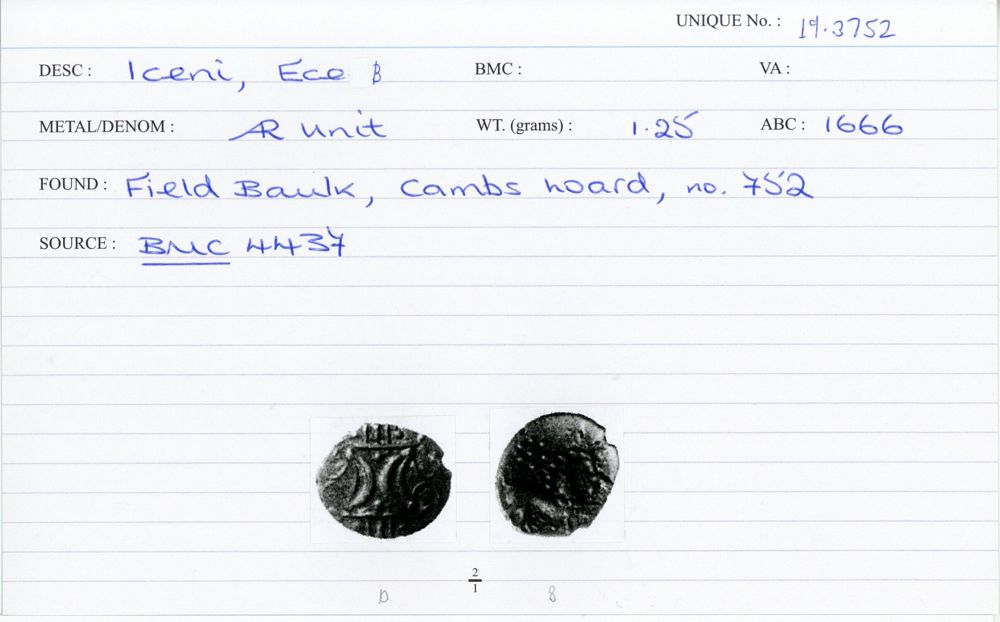 UNIQUE No. : 19.3752
DESC : Iceni, Ece B BMC : VA :
METAL/DENOM : AR Unit WT. (grams) : 1.25 ABC : 1666
FOUND : Field Baulk, Cambs hoard, no. 752
SOURCE : BMC 4437
2
1
D 8